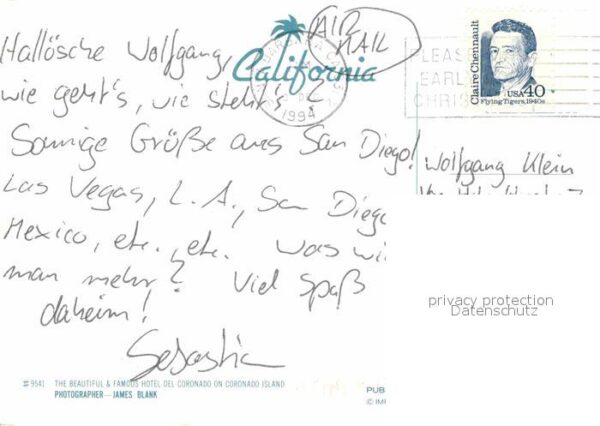 AIR
MAIL
California
1994
PLEAS
EARL
CHRIS
Claire Chennault
USA 40
Flying Tigers, 1940s
Hallösche Wolfgang,
wie geht's, wie steht's?
Sonnige Grüße aus San Diego!
Las Vegas, L.A., San Diego
Mexico, etc., etc. Was wi
man mehr? Viel Spaß
daheim!
Sebastian
Wolfgang Klein
privacy protection
Datenschutz
#9541 THE BEAUTIFUL & FAMOUS HOTEL DEL CORONADO ON CORONADO ISLAND
PHOTOGRAPHER—JAMES BLANK
PUB
© IM